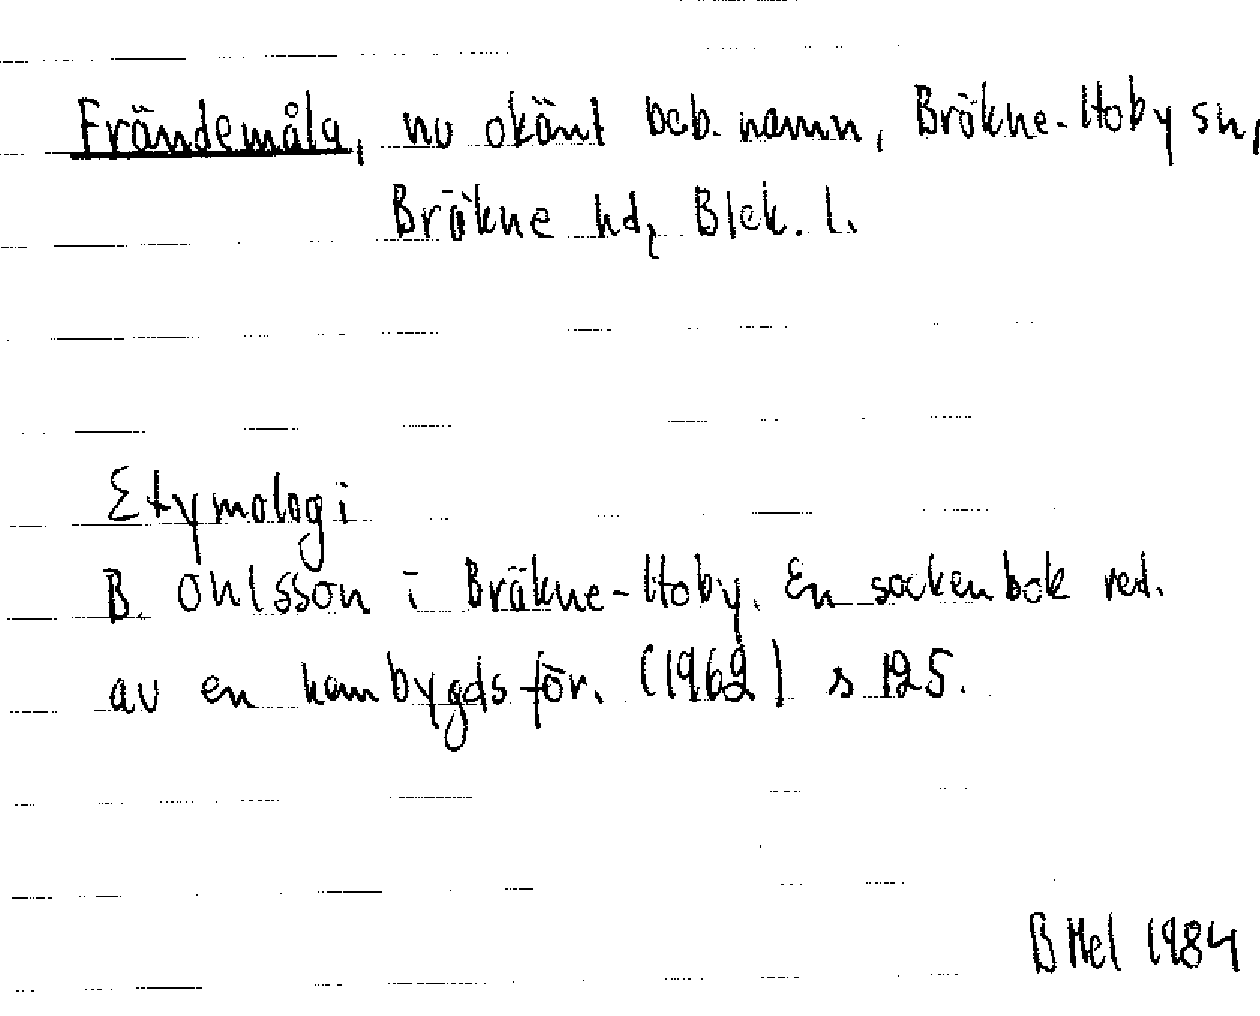 Frändemåla, nu okänt beb. namn, Bräkne-Hoby sn,
Bräkne hd, Blek. l.
Etymologi
B. Ohlsson i Bräkne-Hoby. En sockenbok red.
av en hembygdsför. (1962) s 125.
B Hel 1984